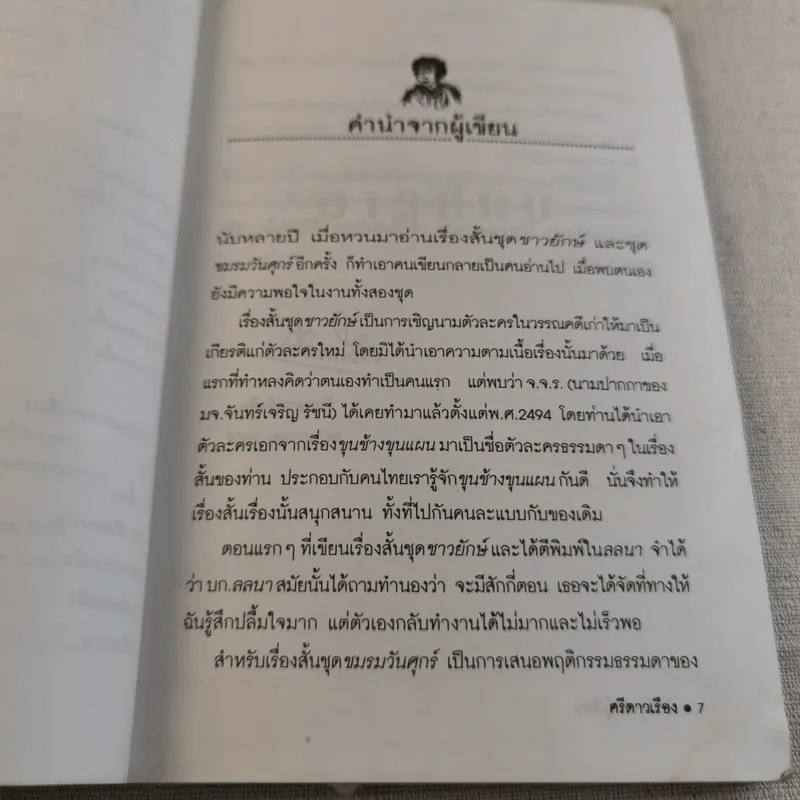 คำนำจากผู้เขียน
นับหลายปี เมื่อหวนมาอ่านเรื่องสั้นชุดชาวยักษ์ และชุด
ชมรมวันศุกร์อีกครั้ง ก็ทำเอาคนเขียนกลายเป็นคนอ่านไป เมื่อพบตนเอง
ยังมีความพอใจในงานทั้งสองชุด
เรื่องสั้นชุดชาวยักษ์เป็นการเชิญนามตัวละครในวรรณคดีเก่าให้มาเป็น
เกียรติแก่ตัวละครใหม่ โดยมิได้นำเอาความตามเนื้อเรื่องนั้นมาด้วย เมื่อ
แรกที่ทำหลงคิดว่าตนเองทำเป็นคนแรก แต่พบว่า จ.จ.ร. (นามปากกาของ
มจ.จันทร์เจริญ รัชนี) ได้เคยทำมาแล้วตั้งแต่พ.ศ.2494 โดยท่านได้นำเอา
ตัวละครเอกจากเรื่องขุนช้างขุนแผน มาเป็นชื่อตัวละครธรรมดาๆ ในเรื่อง
สั้นของท่าน ประกอบกับคนไทยเรารู้จักขุนช้างขุนแผน กันดี นั่นจึงทำให้
เรื่องสั้นเรื่องนั้นสนุกสนาน ทั้งที่ไปกันคนละแบบกับของเดิม
ตอนแรกๆ ที่เขียนเรื่องสั้นชุดชาวยักษ์ และได้ตีพิมพ์ในลลนา จำได้
ว่า บก.ลลนา สมัยนั้นได้ถามทำนองว่า จะมีสักกี่ตอน เธอจะได้จัดที่ทางให้
ฉันรู้สึกปลื้มใจมาก แต่ตัวเองกลับทำงานได้ไม่มากและไม่เร็วพอ
สำหรับเรื่องสั้นชุดชมรมวันศุกร์ เป็นการเสนอพฤติกรรมธรรมดาของ
ศรีดาวเรือง ● 7